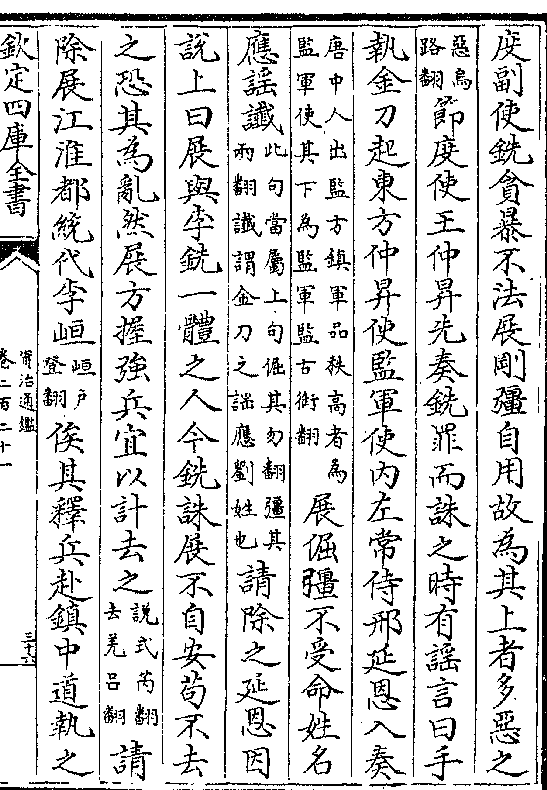 度副使銑貪暴不法展剛彊自用故為其上者多惡之
惡烏路翻節度使王仲昇先奏銑罪而誅之時有謡言曰手
執金刀起東方仲昇使監軍使内左常侍邢延恩入奏
唐中人出監方鎮軍品秩髙者為監軍使其下為監軍監古銜翻展倔彊不受命姓名
應謡讖此句當屬上句倔其勿翻彊其兩翻讖謂金刀之謡應劉姓也請除之延恩因
說上曰展與李銑一體之人今銑誅展不自安苟不去
之恐其為亂然展方握強兵宜以計去之說式芮翻去羌呂翻請
除展江淮都統代李峘峘户登翻俟其釋兵赴鎮中道執之
欽定四庫全書
資治通鑑
卷二百二十一
三十六